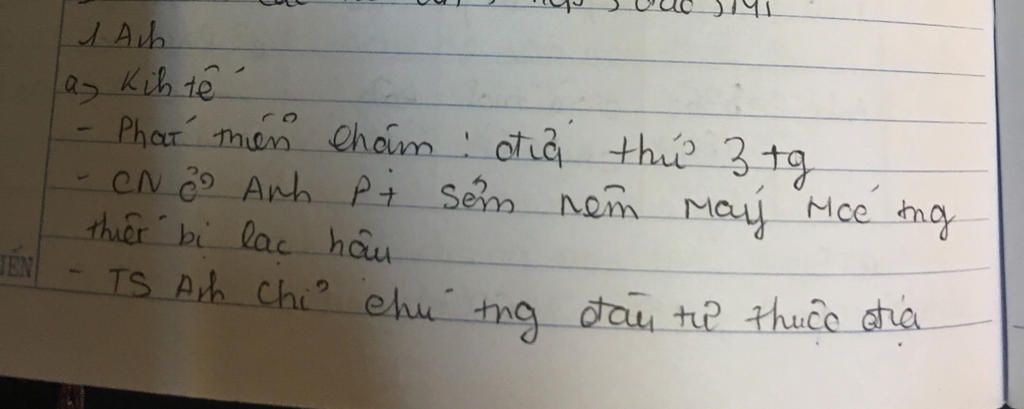 1 Anh
a) Kinh tế
- Phát triển chậm : đứng thứ 3 tg
- CN ở Anh PT sớm nên máy móc trang
thiết bị lạc hậu
- TS Anh chỉ chú trọng đầu tư thuộc địa